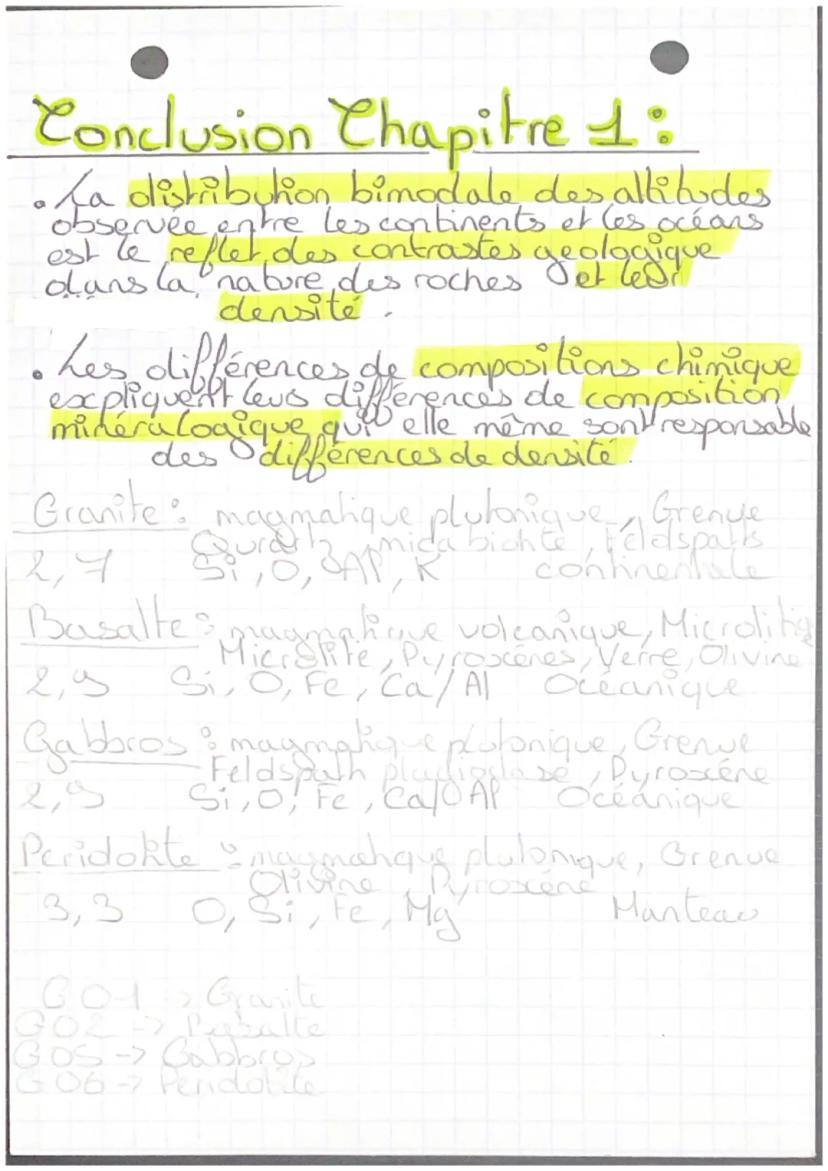 Conclusion Chapitre 1 :
• La distribution bimodale des altitudes
observée entre les continents et les océans
est le reflet des contrastes geologique
dans la nature des roches et leur
densité.
• Les différences de compositions chimique
expliquent leurs différences de composition
minéralogique qui elle même sont responsable
des différences de densité.
Granite : magmatique plutonique, Grenue
Quartz, mica biotite, Feldspaths
2,7 Si, O, Al, K continentale
Basalte : magmatique volcanique, Microlitiq
Microlite, Pyroxènes, Verre, Olivine
2,9 Si, O, Fe, Ca/Al Océanique
Gabbros : magmatique plutonique, Grenue
Feldspath plagioclase, Pyroxène
2,9 Si, O, Fe, Ca/Al Océanique
Peridotite : magmatique plutonique, Grenue
Olivine, Pyroxène
3,3 O, Si, Fe, Mg Manteau
G01 -> Granite
G02 -> Basalte
G05 -> Gabbros
G06 -> Peridotite